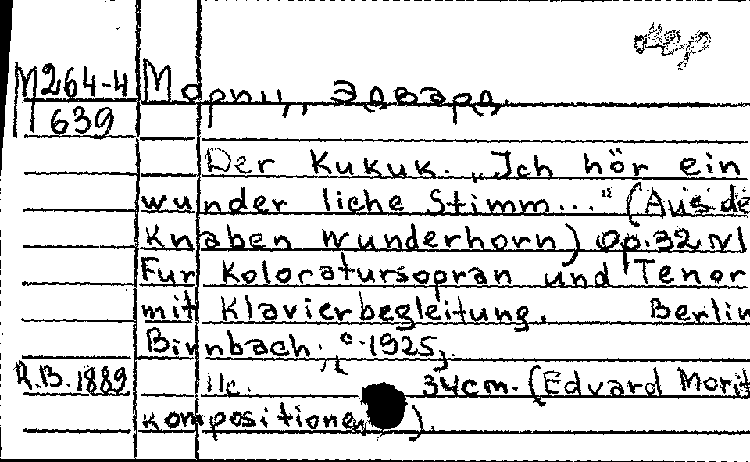 кер
М264-4
639
Мориц, Эдвард.
Der Kukuk. „Ich hör ein
wunder liche Stimm..." (Aus de
Knaben wunderhorn) Op. 32 N1
Fur Koloratursopran und Tenor
mit Klavierbegleitung. Berlin
Birnbach, c 1925,
R.B. 1889 11c. 34cm. (Edvard Morit
kompositionen).